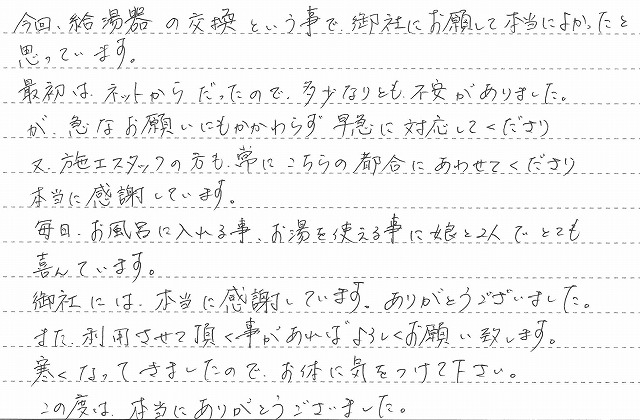 今回、給湯器の交換という事で、御社にお願して本当によかったと
思っています。
最初は、ネットからだったので、多少なりとも、不安がありました。
が、急なお願いにもかかわらず早急に対応してくださり
又、施工スタッフの方も、常にこちらの都合にあわせてくださり
本当に感謝しています。
毎日、お風呂に入れる事、お湯を使える事に娘と2人でとても
喜んでいます。
御社には、本当に感謝しています。ありがとうございました。
また、利用させて頂く事があればよろしくお願い致します。
寒くなってきましたので、お体に気をつけて下さい。
この度は、本当にありがとうございました。